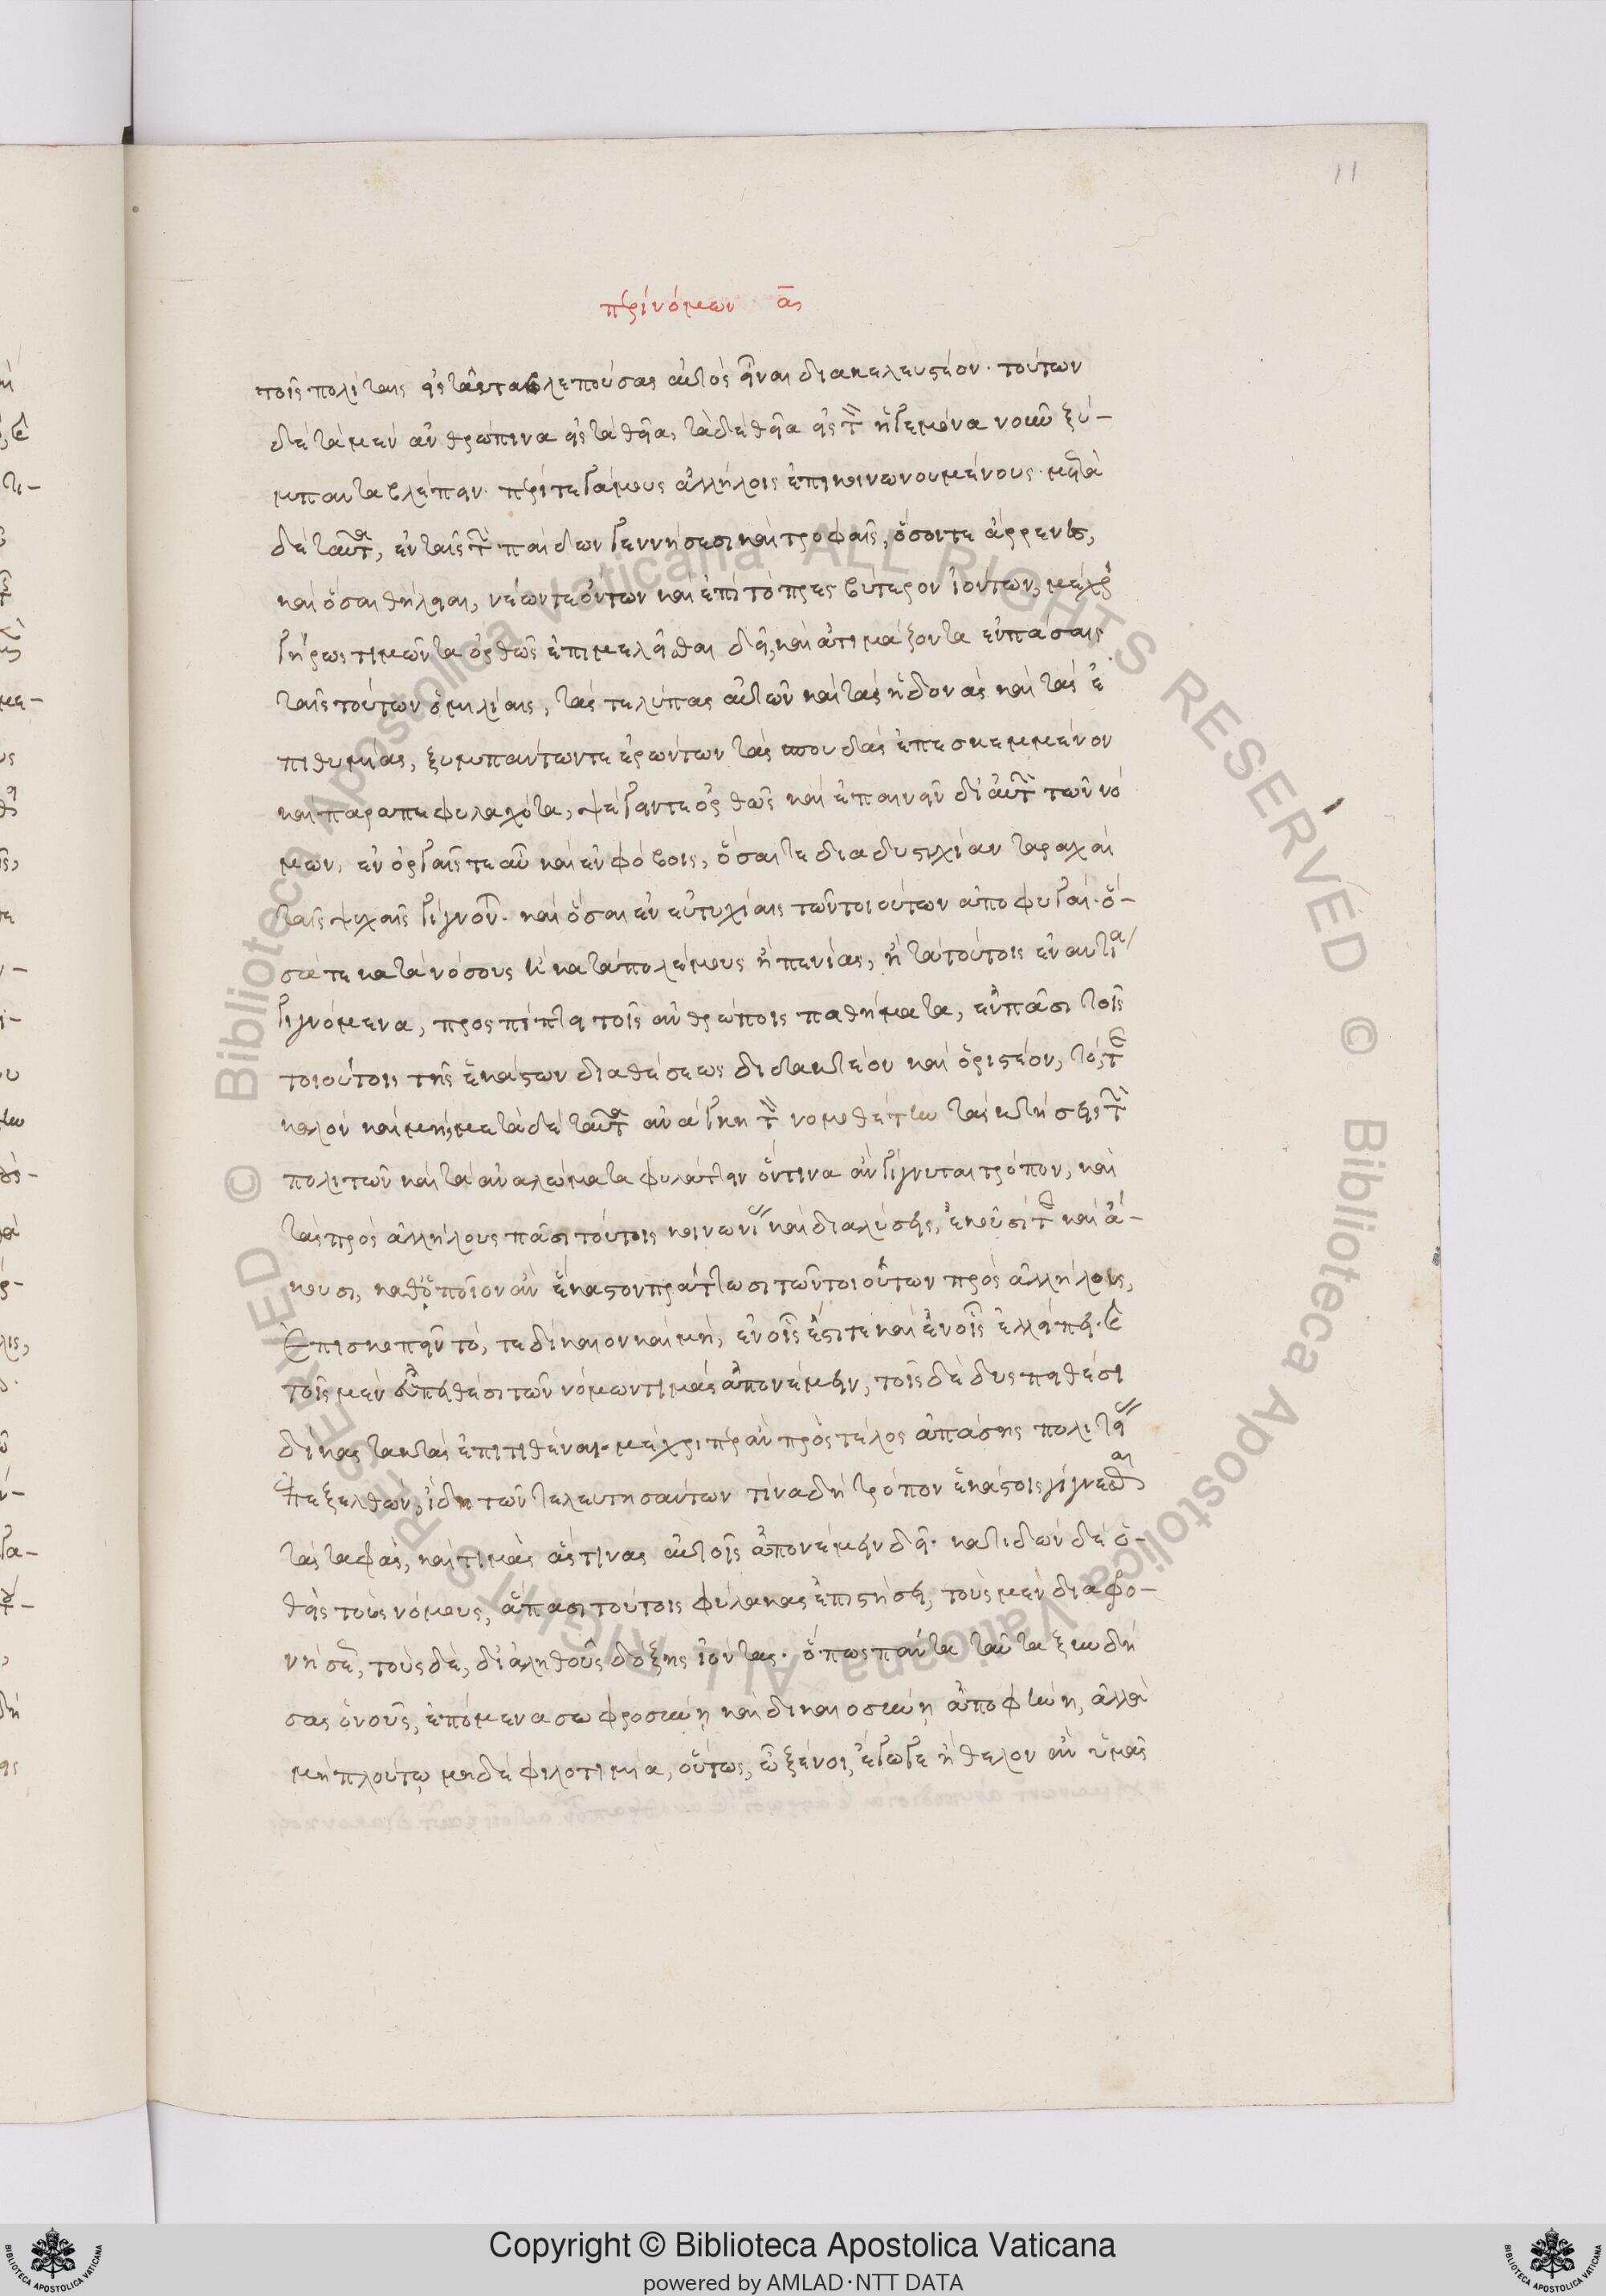 11
περὶ νόμων α
τοῖς πολίταις εἰς ταῦτα βλεπούσας αὐτοῖς εἶναι διακελευστέον· τούτων
δὲ τὰ μὲν ἀνθρώπινα εἰς τὰ θεῖα, τὰ δὲ θεῖα εἰς τὸν ἡγεμόνα νοῦν ξύ-
μπαντα βλέπειν· περί τε γάμους ἀλλήλοις ἐπικοινωνουμένους· μετὰ
δὲ ταῦτα, ἐν ταῖς τῶν παίδων γεννήσεσι καὶ τροφαῖς, ὅσοι τε ἄρρενες,
καὶ ὅσαι θήλειαι, νέων τε ὄντων καὶ ἐπὶ τὸ πρεσβύτερον ἰόντων, μέχρι
γήρως τιμῶντα ὀρθῶς ἐπιμελεῖσθαι δεῖ, καὶ ἀτιμάζοντα ἐν πάσαις
ταῖς τούτων ὁμιλίαις, τάς τε λύπας αὐτῶν καὶ τὰς ἡδονὰς καὶ τὰς ἐ
πιθυμίας, ξυμπάντων τε ἐρώντων τὰς σπουδὰς ἐπεσκεμμένον
καὶ παραπεφυλαχότα, ψέγειν τε ὀρθῶς καὶ ἐπαινεῖν δι' αὐτῶν τῶν νό
μων, ἐν ὀργαῖς τε αὖ καὶ ἐν φόβοις, ὅσαι τε διὰ δυστυχίαν ταραχαὶ
ταῖς ψυχαῖς γίγνονται· καὶ ὅσαι ἐν εὐτυχίαις τῶν τοιούτων ἀποφυγαί· ὅ-
σα τε κατὰ νόσους ἢ κατὰ πολέμους ἢ πενίας, ἢ τὰ τούτοις ἐναντία
γιγνόμενα, προσπίπτει τοῖς ἀνθρώποις παθήματα, ἐν πᾶσι τοῖς
τοιούτοις τῆς ἑκάστων διαθέσεως διδακτέον καὶ ὁριστέον, τό, τε
καλὸν καὶ μή, μετὰ δὲ ταῦτα ἀνάγκη τὸν νομοθέτην τὰς κτήσεις τῶν
πολιτῶν καὶ τὰ ἀναλώματα φυλάττειν ὅντινα ἂν γίγνηται τρόπον, καὶ
τὰς πρὸς ἀλλήλους πᾶσι τούτοις κοινωνίας καὶ διαλύσεις, ἑκοῦσί τε καὶ ἄ-
κουσι, καθ' ὁποῖον ἂν ἕκαστον πράττωσι τῶν τοιούτων πρὸς ἀλλήλους,
Ἐπισκοπεῖν τό, τε δίκαιον καὶ μή, ἐν οἷς ἔστι τε καὶ ἐν οἷς ἐλλείπει· καὶ
τοῖς μὲν εὐπειθέσι τῶν νόμων τιμὰς ἀπονέμειν, τοῖς δὲ δυσπειθέσι
δίκας τακτὰς ἐπιτιθέναι· μέχρι περ ἂν πρὸς τέλος ἁπάσης πολιτείας
ἐπεξελθὼν, ἴδῃ τῶν τελευτησάντων τίνα δὴ τρόπον ἑκάστοις γίγνεσθαι
τὰς ταφὰς, καὶ τιμὰς ἅς τινας αὐτοῖς ἀπονέμειν δεῖ· κατιδὼν δὲ ὁ-
θεὶς τοὺς νόμους, ἅπασι τούτοις φύλακας ἐπιστήσει, τοὺς μὲν διαφρο-
νήσεως, τοὺς δὲ, δι' ἀληθοῦς δόξης ἰόντας· ὅπως πάντα ταῦτα ξυνδή
σας ὁ νοῦς, ἑπόμενα σωφροσύνῃ καὶ δικαιοσύνῃ ἀποφήνῃ, ἀλλὰ
μὴ πλούτῳ μηδὲ φιλοτιμίᾳ, οὕτως, ὦ ξένοι, ἔγωγε ἤθελον ἂν ὑμᾶς
© Biblioteca Apostolica Vaticana ALL RIGHTS RESERVED
© Biblioteca Apostolica Vaticana ALL RIGHTS RESERVED
Copyright © Biblioteca Apostolica Vaticana
powered by AMLAD·NTT DATA
BIBLIOTECA APOSTOLICA VATICANA
BIBLIOTECA APOSTOLICA VATICANA